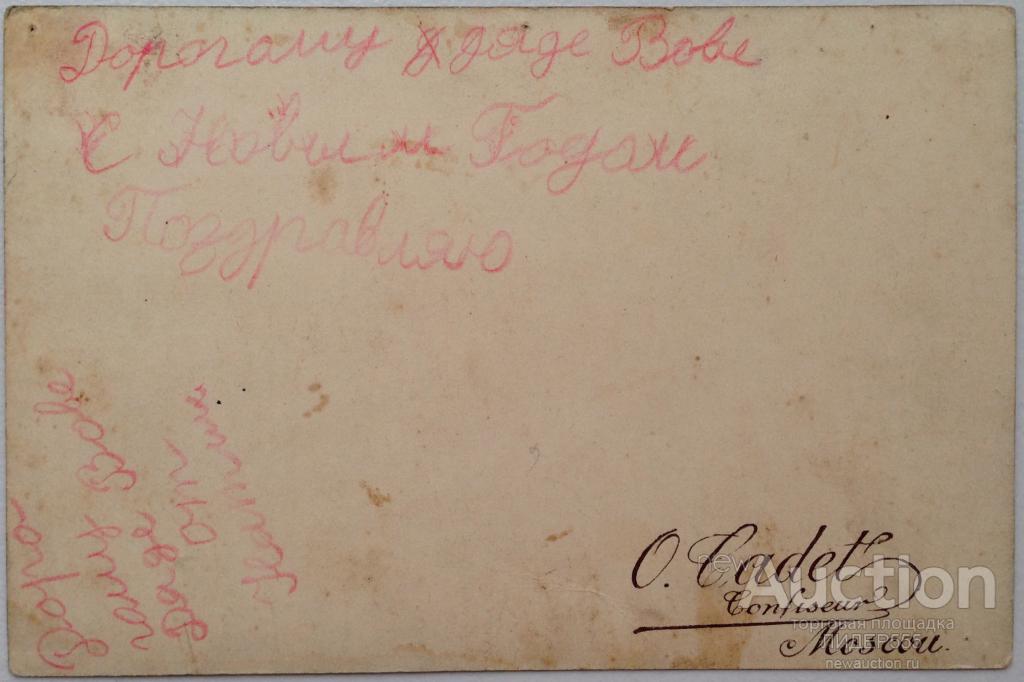 Дорогаму дяде Вове
С Новым Годам
Поздравляю
Дорога
гаму Вове
Дяде
от
O. Cadet
Confiseur
Moscou.
newAuction
торговая площадка
ЛИДЕР555
newauction.ru